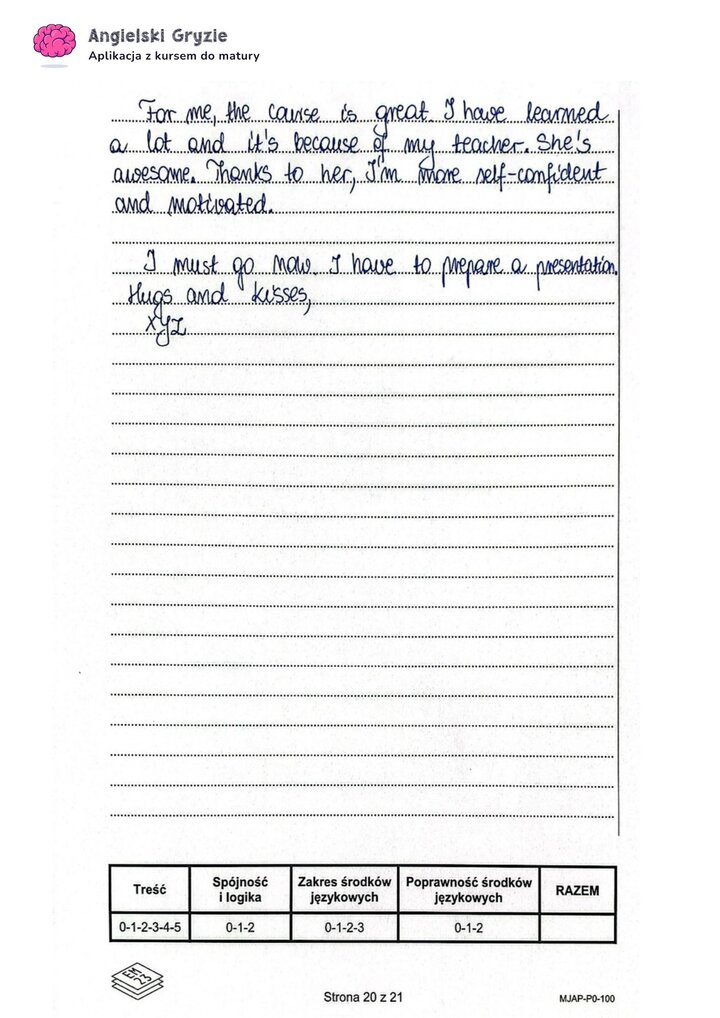 Angielski Gryzie
Aplikacja z kursem do matury
For me, the course is great. I have learned
a lot and it's because of my teacher. She's
awesome. Thanks to her, I'm more self-confident
and motivated.
I must go now. I have to prepare a presentation.
Hugs and kisses,
XYZ
Treść
Spójność i logika
Zakres środków językowych
Poprawność środków językowych
RAZEM
0-1-2-3-4-5
0-1-2
0-1-2-3
0-1-2
EM
23
Strona 20 z 21
MJAP-P0-100